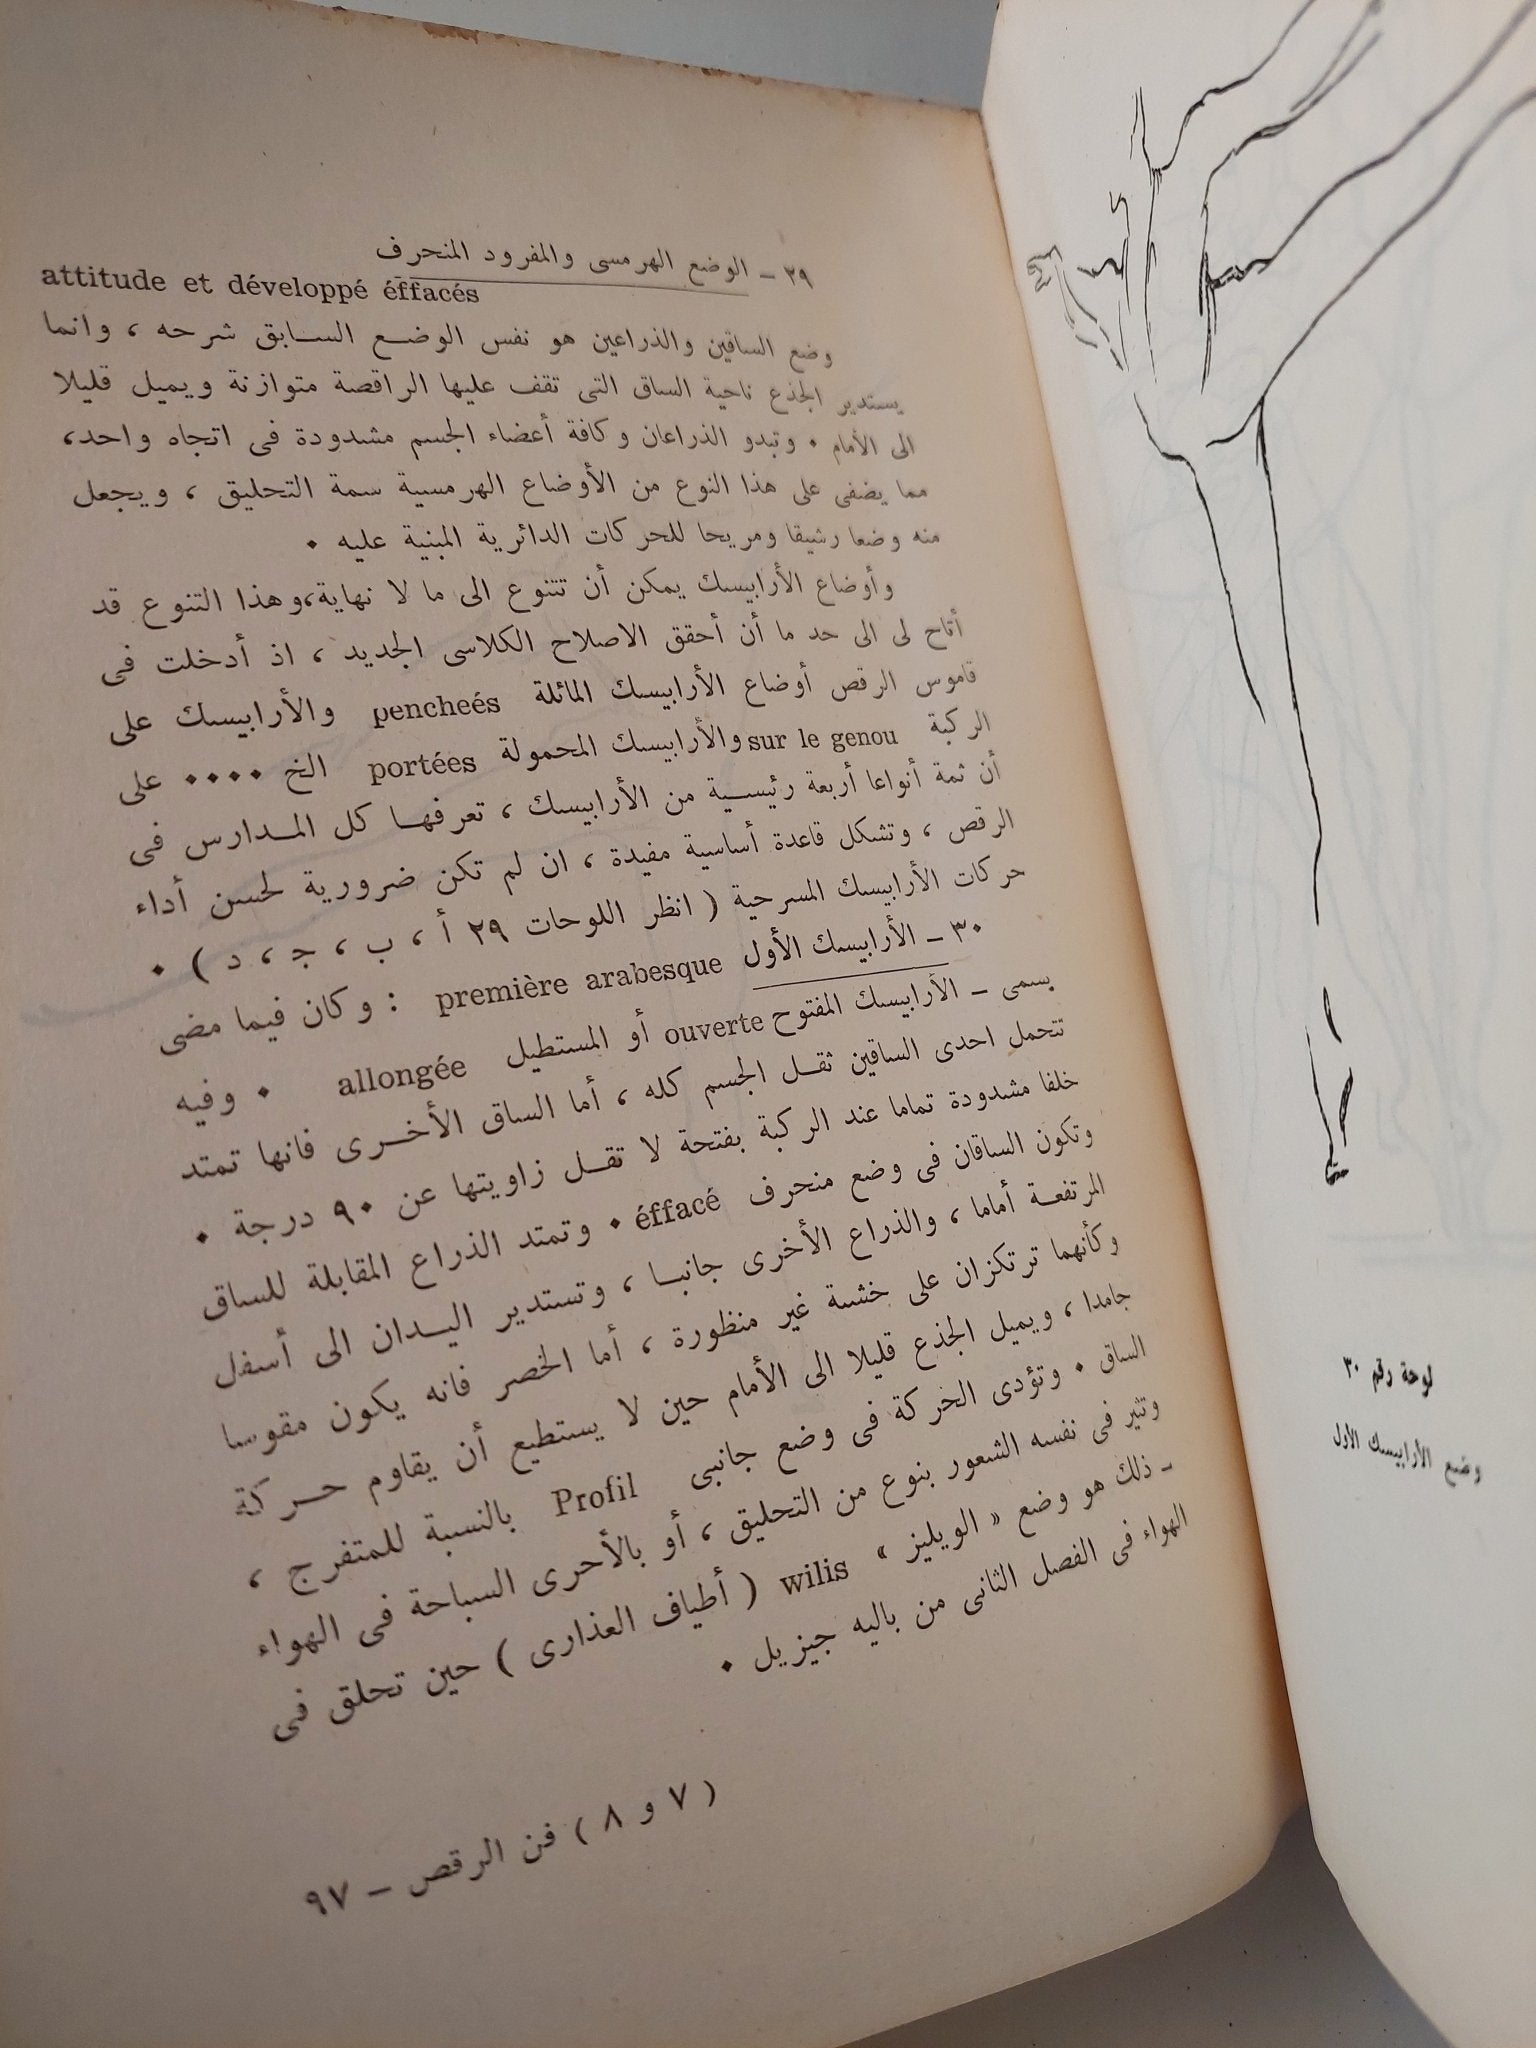 ٢٩ - الوضع الهرمسى والمفرود المنحرف
attitude et développé éffacés
وضع الساقين والذراعين هو نفس الوضع السابق شرحه ، وانما
يستدير الجذع ناحية الساق التى تقف عليها الراقصة متوازنة ويميل قليلا
الى الأمام ٠ وتبدو الذراعان وكافة أعضاء الجسم مشدودة فى اتجاه واحد،
مما يضفى على هذا النوع من الأوضاع الهرمسية سمة التحليق ، ويجعل
منه وضعا رشيقا ومريحا للحركات الدائرية المبنية عليه ٠
وأوضاع الأرابيسك يمكن أن تتنوع الى ما لا نهاية،وهذا التنوع قد
أتاح لى الى حد ما أن أحقق الاصلاح الكلاسى الجديد ، اذ أدخلت فى
قاموس الرقص أوضاع الأرابيسك المائلة pencheés والأرابيسك على
الركبة sur le genou والأرابيسك المحمولة portées الخ ٠٠٠٠ على
أن ثمة أنواعا أربعة رئيسية من الأرابيسك ، تعرفها كل المدارس فى
الرقص ، وتشكل قاعدة أساسية مفيدة ، ان لم تكن ضرورية لحسن أداء
حركات الأرابيسك المسرحية ( انظر اللوحات ٢٩ أ ، ب ، ج ، د ) ٠
٣٠ - الأرابيسك الأول première arabesque : وكان فيما مضى
يسمى - الأرابيسك المفتوح ouverte أو المستطيل allongée ٠ وفيه
تتحمل احدى الساقين ثقل الجسم كله ، أما الساق الأخرى فانها تمتد
خلفا مشدودة تماما عند الركبة بفتحة لا تقل زاويتها عن ٩٠ درجة ٠
وتكون الساقان فى وضع منحرف éffacé ٠ وتمتد الذراع المقابلة للساق
المرتفعة أماما ، والذراع الأخرى جانبا ، وتستدير اليدان الى أسفل
وكأنهما ترتكزان على خشبة غير منظورة ، أما الخصر فانه يكون مقوسا
جامدا ، ويميل الجذع قليلا الى الأمام حين لا يستطيع أن يقاوم حركة
الساق ٠ وتؤدى الحركة فى وضع جانبى Profil بالنسبة للمتفرج ،
وتثير فى نفسه الشعور بنوع من التحليق ، أو بالأحرى السباحة فى الهواء
- ذلك هو وضع « الويليز » wilis ( أطياف العذارى ) حين تحلق فى
الهواء فى الفصل الثانى من باليه جيزيل ٠
( ٧ و ٨ ) فن الرقص - ٩٧
لوحة رقم ٣٠
وضع الأرابيسك الأول